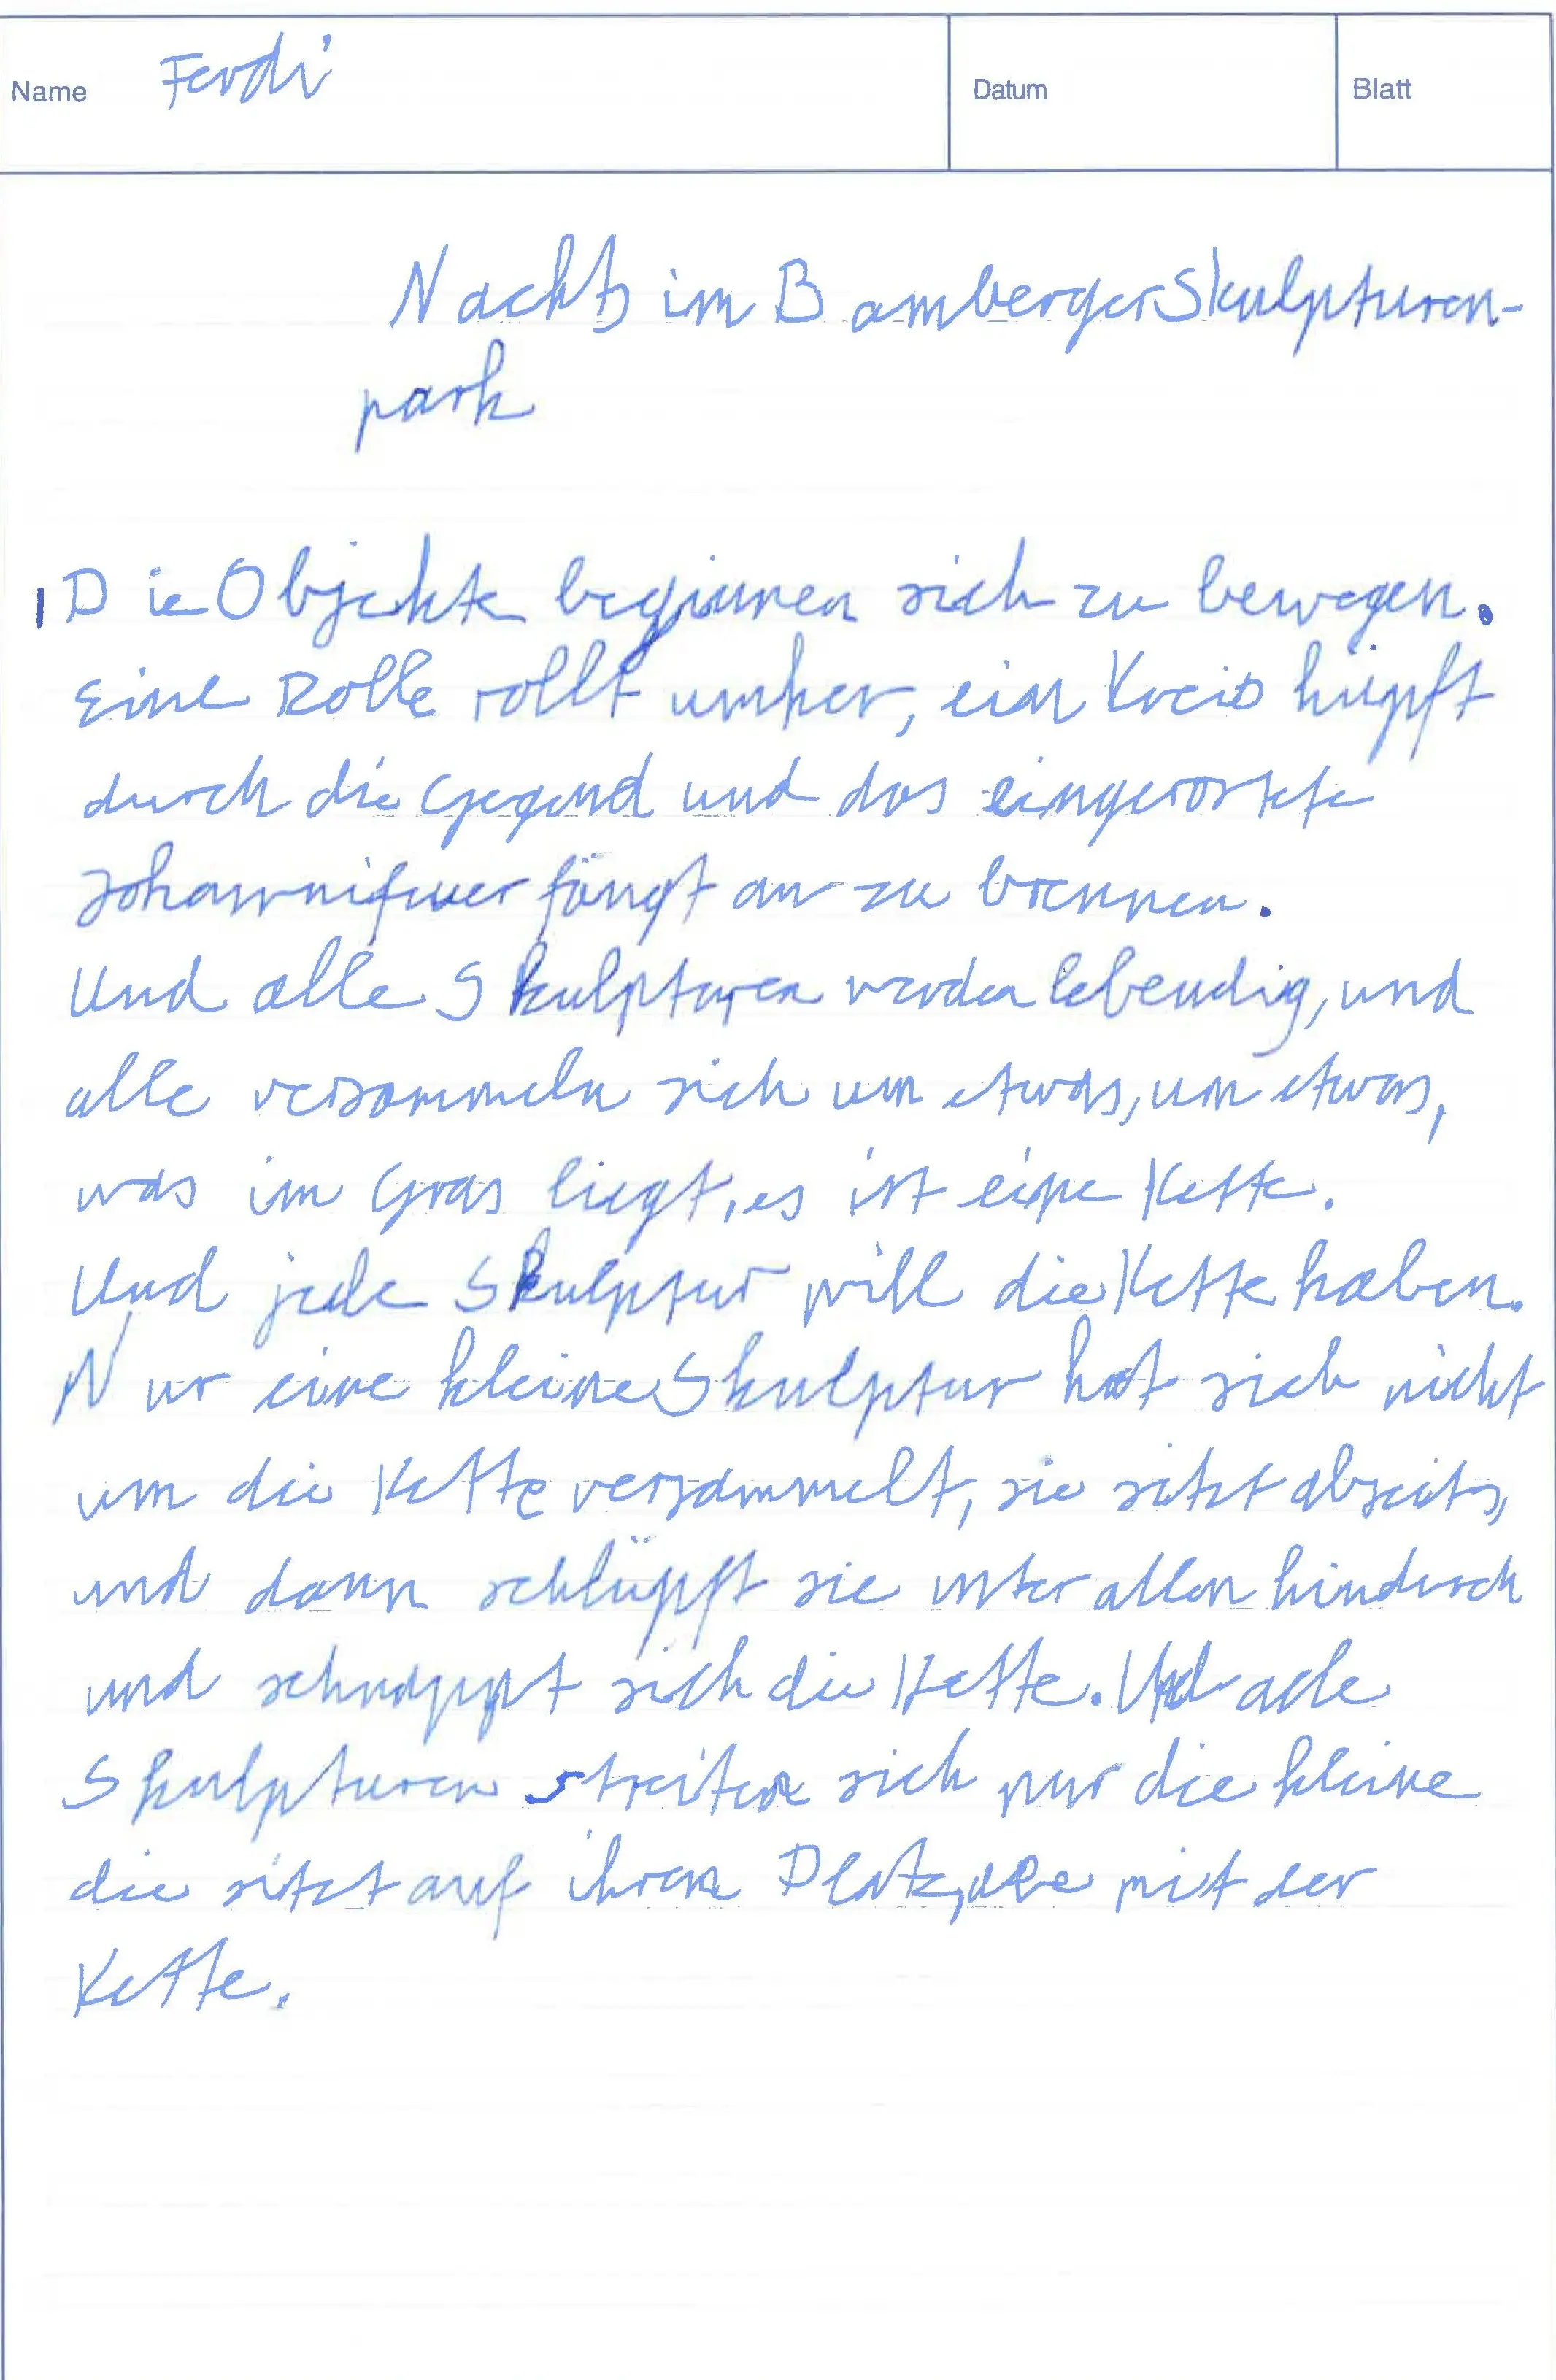 Name Ferdi Datum Blatt
Nachts im Bamberger Skulpturen-
park
Die Objekte beginnen sich zu bewegen.
Eine Rolle rollt umher, ein Kreis hüpft
durch die Gegend und das eingerostete
Johannifeuer fängt an zu brennen.
Und alle Skulpturen werden lebendig, und
alle versammeln sich um etwas, um etwas,
was im Gras liegt, es ist eine Kette.
Und jede Skulptur will die Kette haben.
Nur eine kleine Skulptur hat sich nicht
um die Kette versammelt, sie sitzt abseits,
und dann schlüpft sie unter allen hindurch
und schnappt sich die Kette. Und alle
Skulpturen streiten sich nur die kleine
die sitzt auf ihren Platz, mit der
Kette.